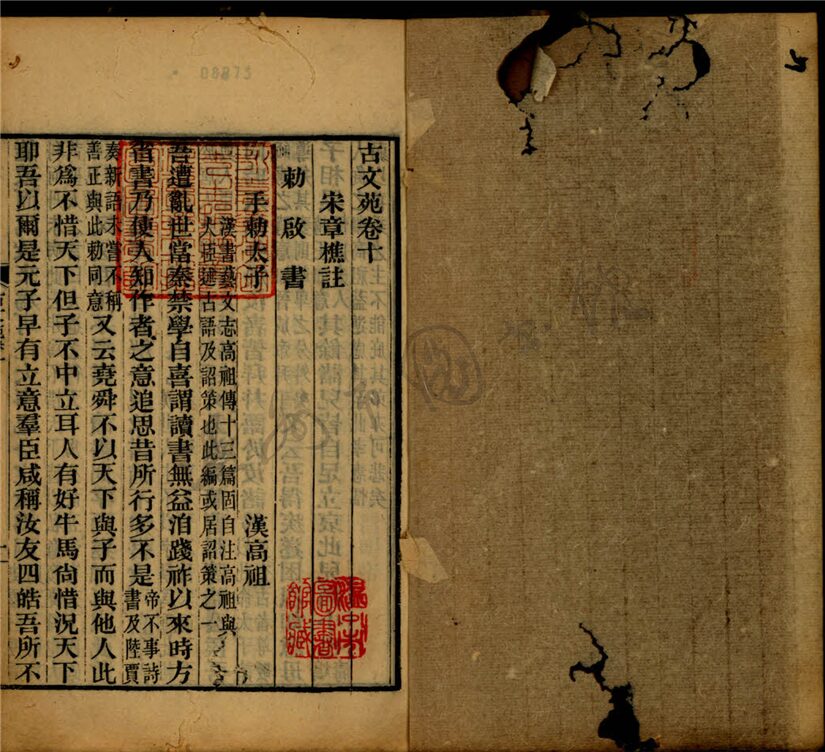 08873
古文苑卷十
宋章樵註
勅啟書
手勅太子 漢高祖
漢書藝文志高祖傳十三篇固自注高祖與
大臣述古語及詔策也此編或居詔策之一
吾遭亂世當秦禁學自喜謂讀書無益洎踐祚以來時方
省書乃使人知作者之意追思昔所行多不是帝不事詩
書及陸賈
奏新語未嘗不稱
善正與此勅同意又云堯舜不以天下與子而與他人此
非為不惜天下但子不中立耳人有好牛馬尙惜況天下
耶吾以爾是元子早有立意羣臣咸稱汝友四皓吾所不